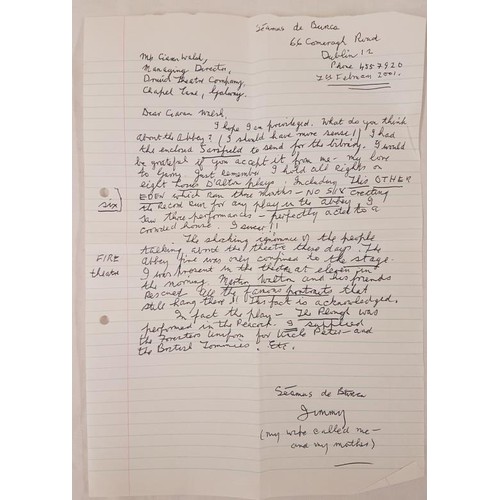 Séamas de Búrca
66 Comeragh Road
Dublin 12
Phone 4557920
February 2001.
Managing Director,
Druid Theatre Company,
Chapel Lane, Galway.
Dear Ciaran Walsh,
I hope I am privileged. What do you think
about the Abbey? (I should have more sense!! I had
the enclosed to send for the library. I would
be grateful if you accept it from me - my love
to Garry. Just remember I hold all rights on
eight Louis D'Alton plays. Including This OTHER
EDEN which ran three months - NO SIX creating
six
the record run for any play in the Abbey. I
saw three performances - perfectly acted to a
crowded house. I swear!!
The shocking ignorance of the people
talking about the theatre these days. The
FIRE
Abbey fire was only confined to the stage.
theatre
I was present in the theatre at eleven in
the morning. Martin Walton and his friends
Rescued all the famous portraits that
still hang there!! This fact is acknowledged.
In fact the play - The Plough was
performed in the Peacock. I supplied
the Foresters Uniform for Uncle Peter - and
the British Tommies. Etc.
Séamas de Búrca
Jimmy
(my wife called me -
and my mother)